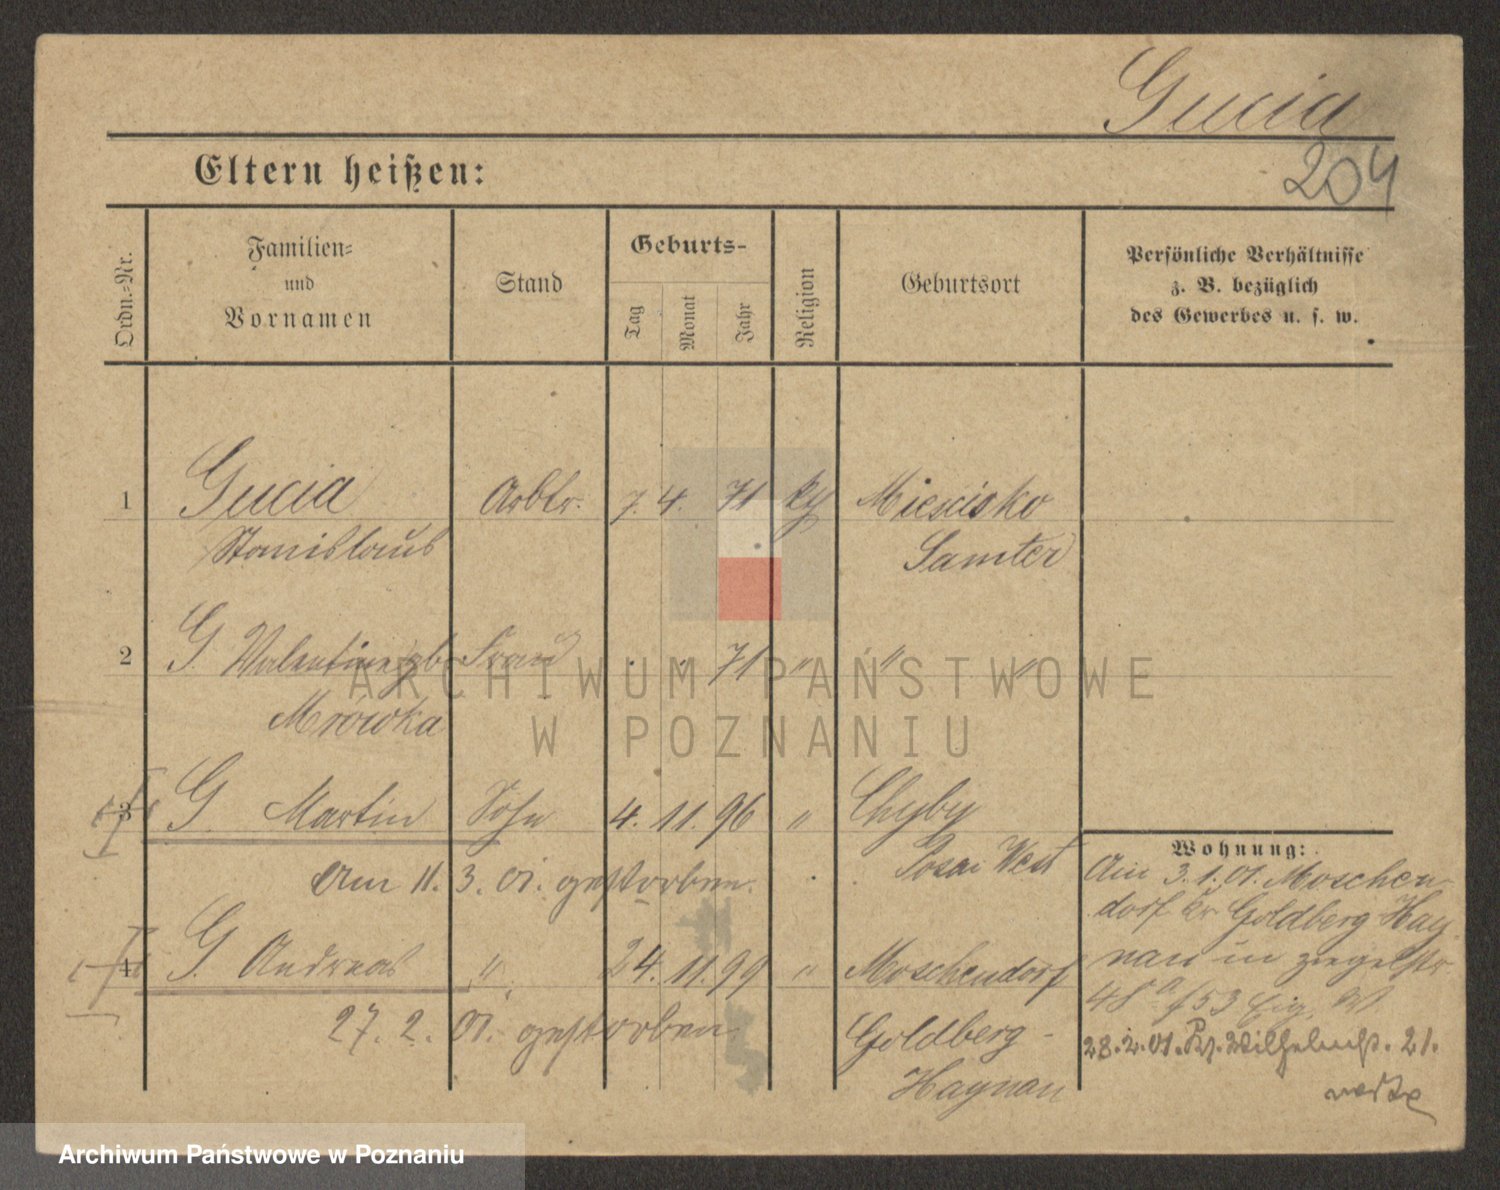 Gucia
204
Eltern heißen:
Ordn.-Nr.
Familien-
und
Vornamen
Stand
Geburts-
Tag
Monat
Jahr
Religion
Geburtsort
Persönliche Verhältnisse
z. B. bezüglich
des Gewerbes u. s. w.
1 Gucia Arbtr. 7. 4. 71 Miescisko
Stanislaus Samter
2 G. Valentine gb Frau . . 71 " " "
Mrowka
3 G. Martin Sohn 4. 11. 96 " Chyby
Posen West
Am 11. 3. 01. gestorben.
4 G. Andreas " 24. 11. 99 " Moschendorf
27. 2. 01. gestorben. Goldberg-
Haynau
Wohnung:
Am 3. 1. 01. Moschen-
dorf Kr Goldberg Hay-
nau in
28. 2. 01. Wilhelmst. 21.
ARCHIWUM PAŃSTWOWE
W POZNANIU
Archiwum Państwowe w Poznaniu